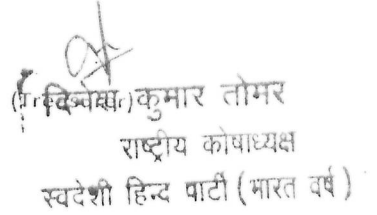 कुमार तोमर
राष्ट्रीय कोषाध्यक्ष
स्वदेशी हिन्द पार्टी ( भारत वर्ष )